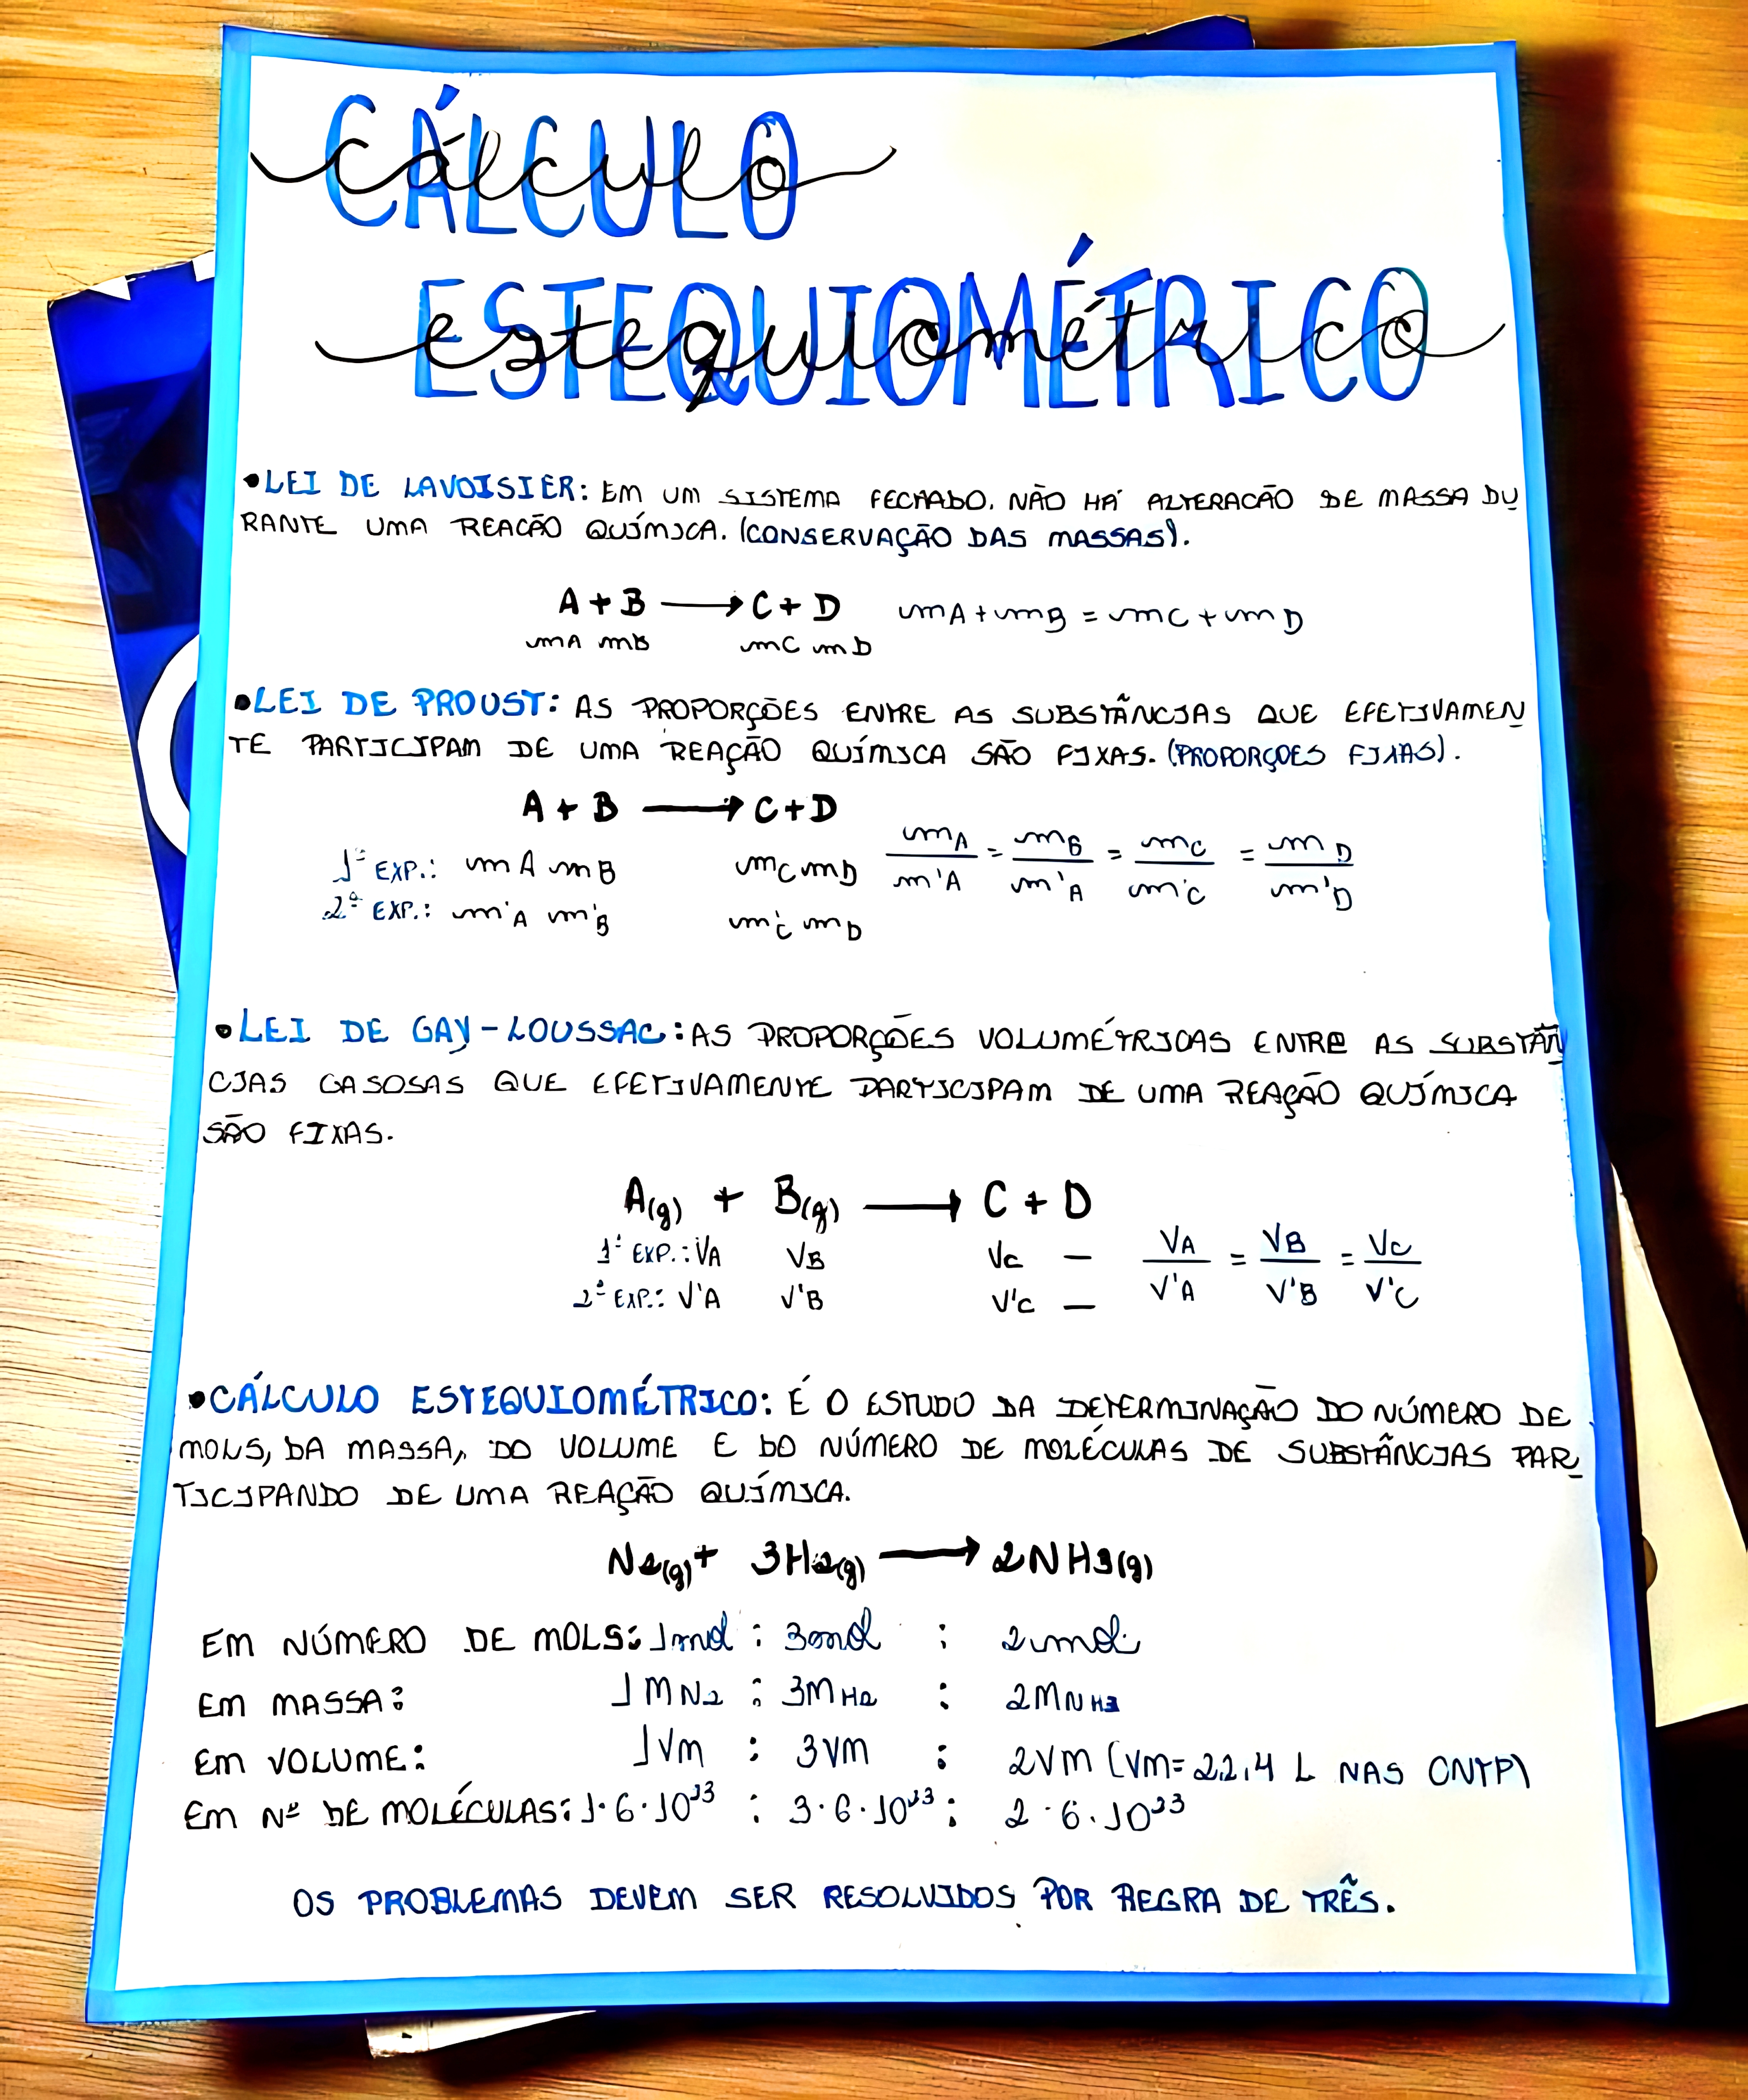 CÁLCULO
cálculo
ESTEQUIOMÉTRICO
estequiométrico
•LEI DE LAVOISIER: EM UM SISTEMA FECHADO. NÃO HÁ ALTERACÃO DE MASSA DU
RANTE UMA REACÃO QUÍMICA. (CONSERVAÇÃO DAS MASSAS).
A + B ⟶ C + D mA + mB = mC + mD
mA mB mC mD
•LEI DE PROUST: AS PROPORÇÕES ENTRE AS SUBSTÂNCIAS QUE EFETIVAMEN
TE PARTICIPAM DE UMA REAÇÃO QUÍMICA SÃO FIXAS. (PROPORÇOES FIXAS).
A + B ⟶ C + D
1º EXP.: mA mB mC mD mA/m'A = mB/m'A = mC/m'C = mD/m'D
2º EXP.: m'A m'B m'C mD
•LEI DE GAY-LOUSSAC: AS PROPORÇÕES VOLUMÉTRICAS ENTRE AS SUBSTÂN
CIAS GASOSAS QUE EFETIVAMENTE PARTICIPAM DE UMA REAÇÃO QUÍMICA
SÃO FIXAS.
A(g) + B(g) ⟶ C + D
1º EXP.: VA VB VC — VA/V'A = VB/V'B = VC/V'C
2º EXP.: V'A V'B V'C —
•CÁLCULO ESTEQUIOMÉTRICO: É O ESTUDO DA DETERMINAÇÃO DO NÚMERO DE
MOLS, DA MASSA, DO VOLUME E DO NÚMERO DE MOLÉCULAS DE SUBSTÂNCIAS PAR
TICIPANDO DE UMA REAÇÃO QUÍMICA.
N2(g) + 3H2(g) ⟶ 2NH3(g)
EM NÚMERO DE MOLS: 1mol : 3mol : 2mol
EM MASSA: 1MN2 : 3MH2 : 2MNH3
EM VOLUME: 1Vm : 3Vm : 2Vm (Vm= 22,4 L NAS CNTP)
EM Nº DE MOLÉCULAS: 1·6·10²³ : 3·6·10²³ : 2·6·10²³
OS PROBLEMAS DEVEM SER RESOLVIDOS POR REGRA DE TRÊS.